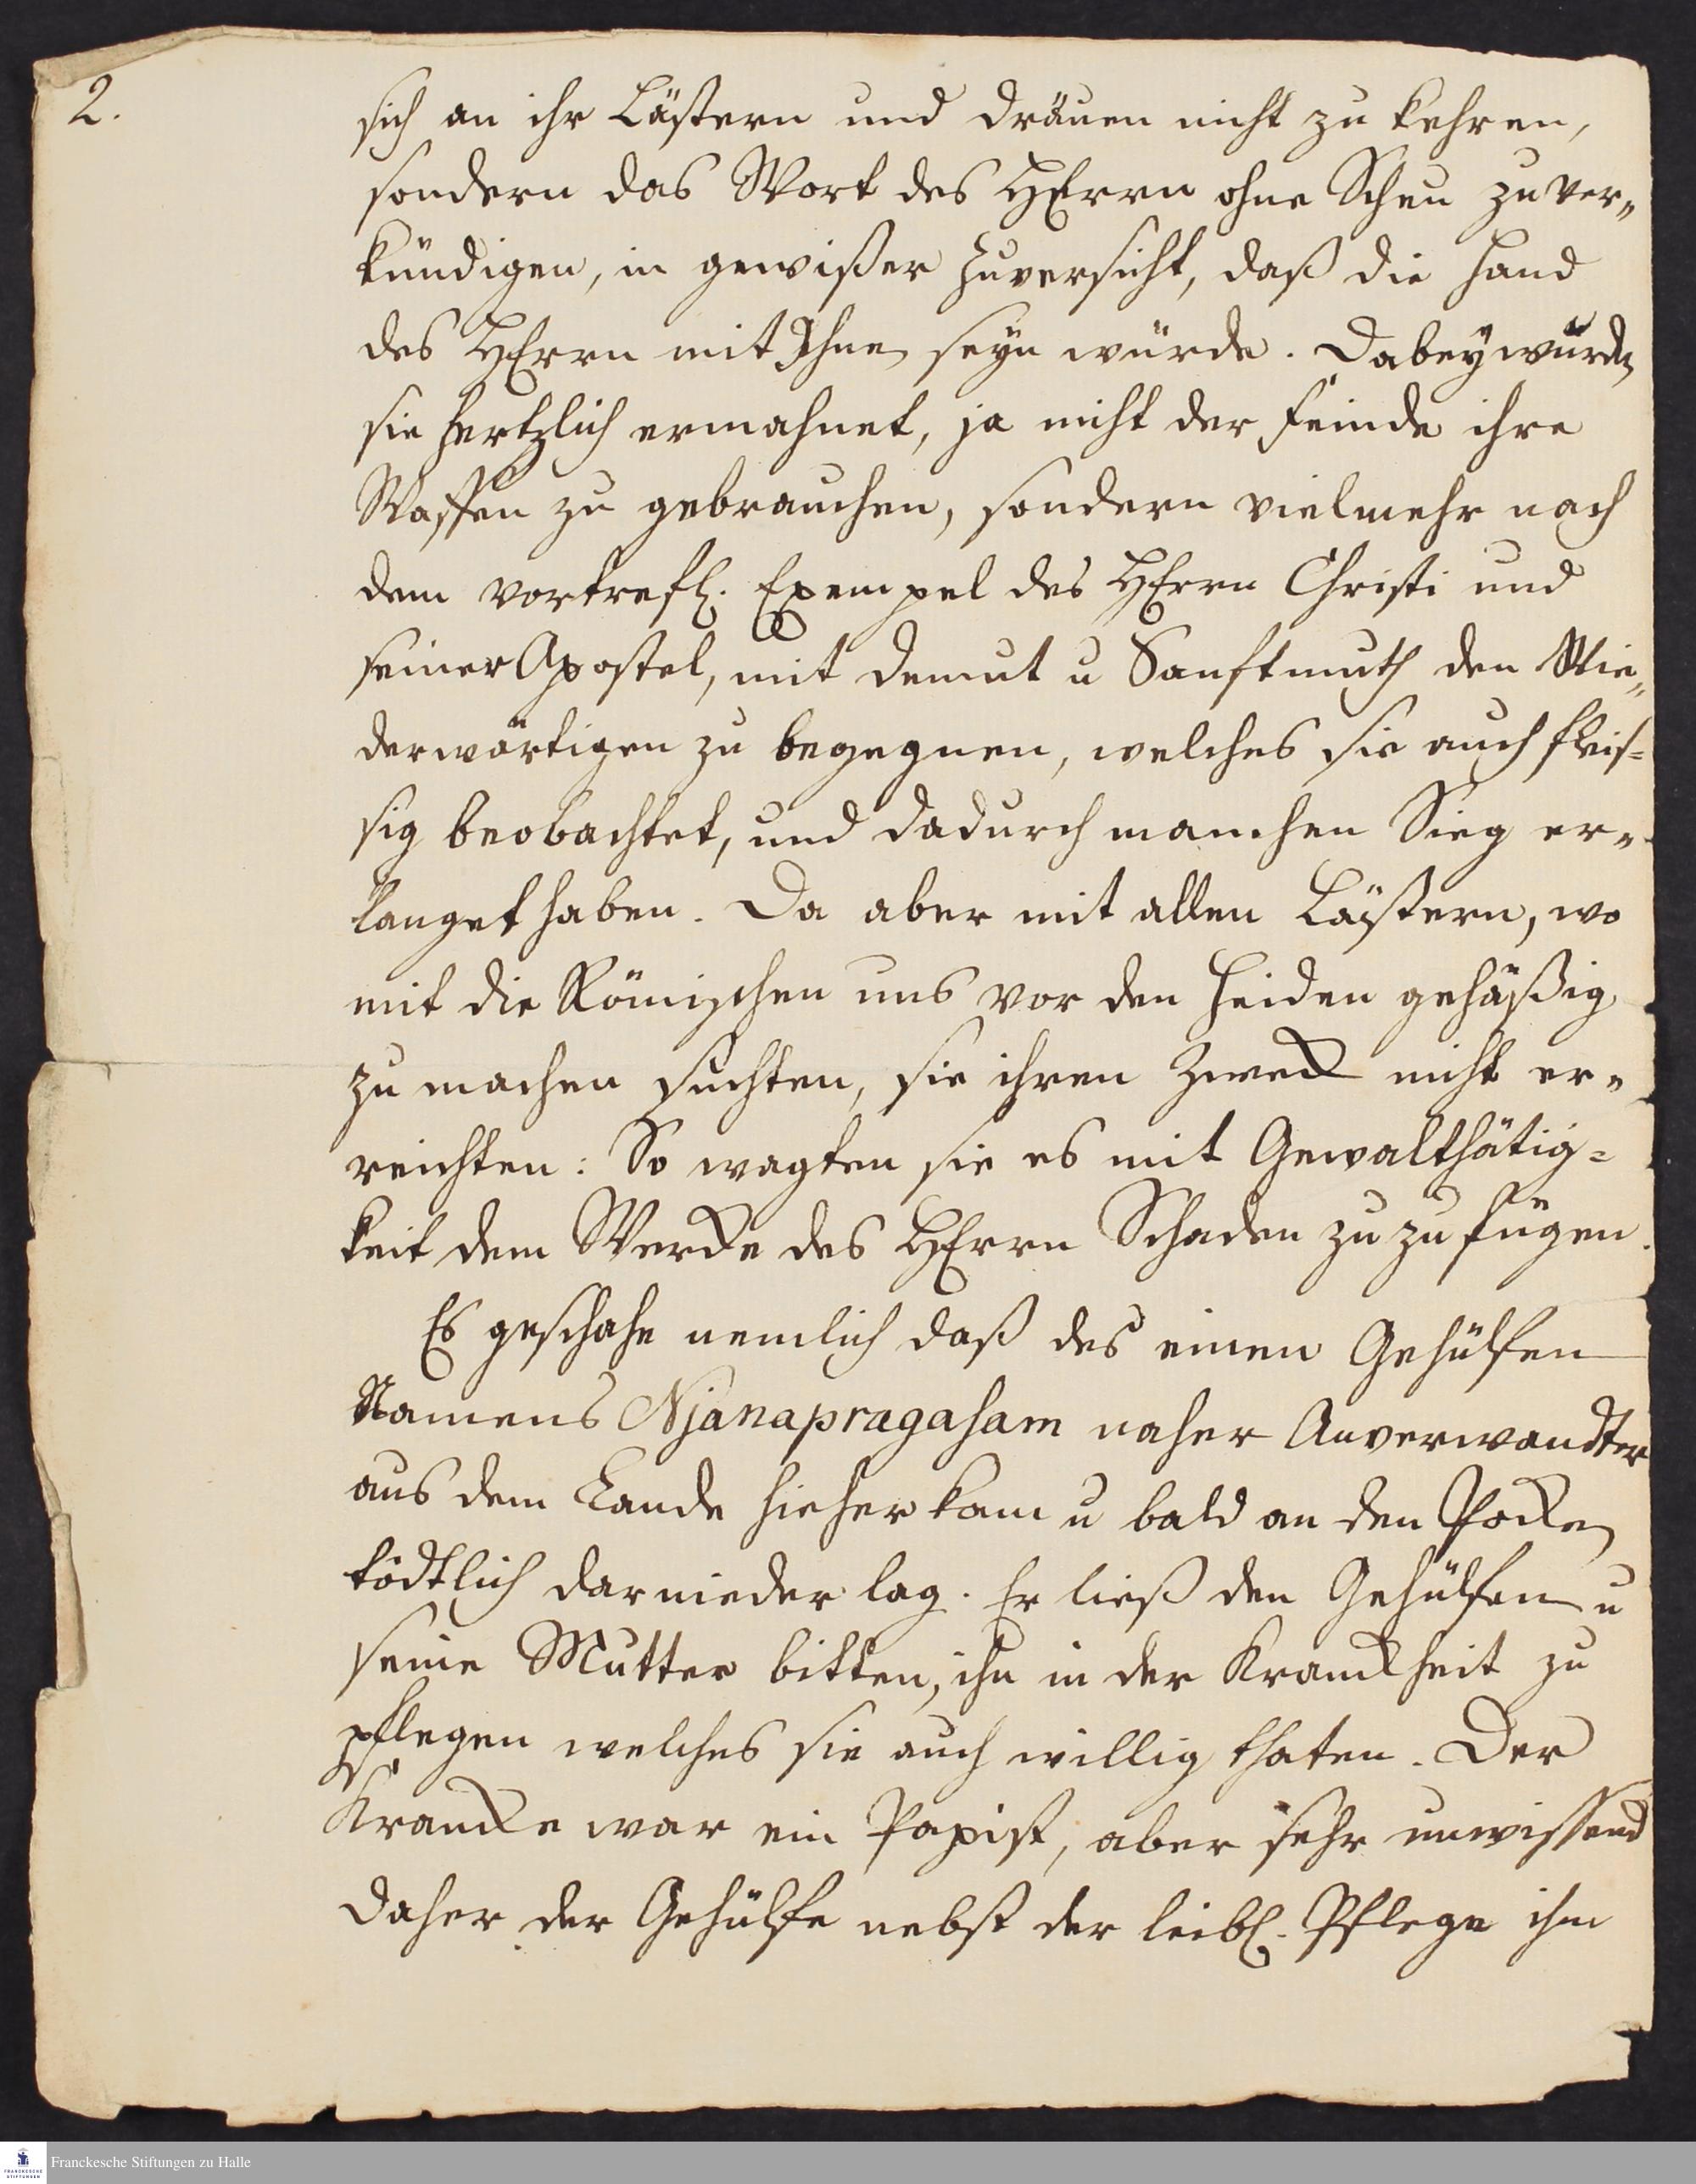 2.
sich an ihr Lästern und dräuen nicht zu kehren,
sondern das Wort des HErrn ohne Scheu zu ver„
kündigen, in gewißer Zuversicht, daß die Hand
des HErrn mit Ihnen seÿn würde. Dabeÿ würden
sie hertzlich ermahnet, ja nicht der Feinde ihre
Waffen zu gebrauchen, sondern vielmehr nach
dem vortrefl. Exempel des HErrn Christi und
seiner Apostel, mit Demut u Sanftmuth den Wie„
derwärtigen zu begegnen, welches sie auch fleis=
sig beobachtet, und dadurch manchen Sieg er„
langet haben. Da aber mit allen Lästern, wo
mit die Römischen uns vor den Heiden gehäßig
zu machen suchten, sie ihren Zweck nicht er„
reichten: So wagten sie es mit Gewaltthätig=
keit dem Wercke des HErrn Schaden zu zu fügen.
Es geschahe nemlich daß des einen Gehülfen
Namens Njanapragasam naher Anverwandter
aus dem Lande hieher kam u bald an den Pocken
tödtlich darnieder lag. Er ließ den Gehülfen u
seine Mutter bitten, ihn in der Kranckheit zu
pflegen welches sie auch willig thaten. Der
Krancke war ein Papist, aber sehr unwissend
daher der Gehülfe nebst der leibl. Pflege ihm
Franckesche Stiftungen zu Halle
FRANCKESCHE
STIFTUNGEN